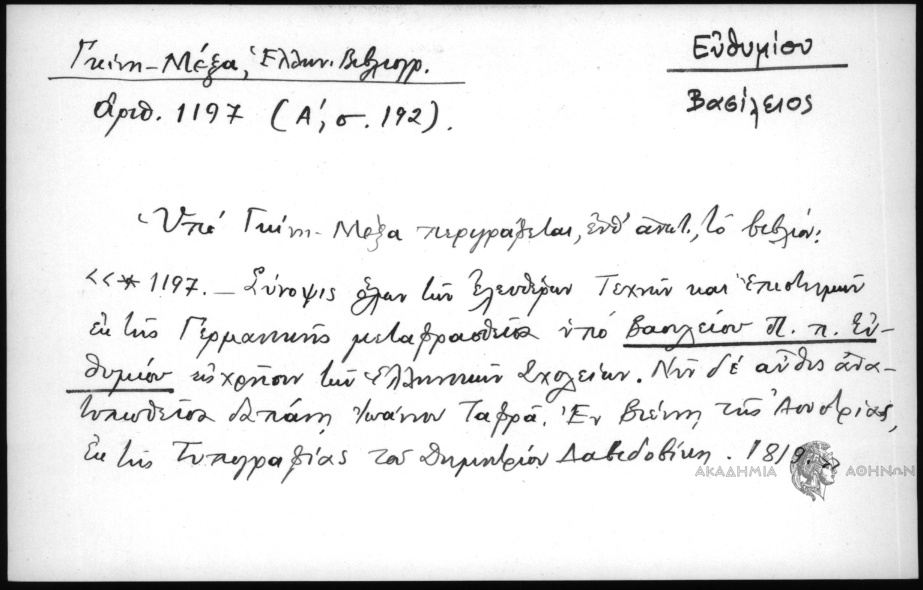 Γκίνη-Μέξα, Ἑλλην. Βιβλιογρ.
ἀριθ. 1197 (Α΄, σ. 192).
Εὐθυμίου
Βασίλειος
Ὑπὸ Γκίνη-Μέξα περιγράφεται, ἐνθ' ἀνωτ., τὸ βιβλίον:
<<* 1197. _ Σύνοψις ὅλων τῶν Ἐλευθέρων Τεχνῶν καὶ Ἐπιστημῶν
ἐκ τῆς Γερμανικῆς μεταφρασθεῖσα ὑπὸ Βασιλείου Π. π. Εὐ-
θυμίου εἰς χρῆσιν τῶν Ἑλληνικῶν Σχολείων. Νῦν δὲ αὖθις ἀνα-
τυπωθεῖσα δαπάνῃ Ἰωάννου Ταφρᾶ. Ἐν Βιέννῃ τῆς Ἀουστρίας,
Ἐκ τῆς Τυπογραφίας τοῦ Δημητρίου Δαβιδοβίκη. 1819.>>
ΑΚΑΔΗΜΙΑ ΑΘΗΝΩΝ